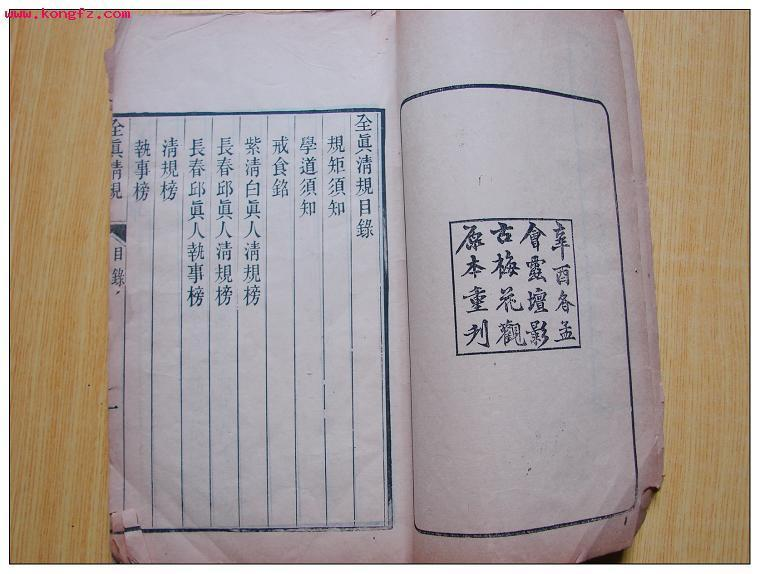 www.kongfz.com
辛酉冬孟
會靈壇影
古梅花觀
原本重刊
全真清規目錄
規矩須知
學道須知
戒食銘
紫清白真人清規榜
長春邱真人清規榜
長春邱真人執事榜
清規榜
執事榜
全真清規
目錄
一